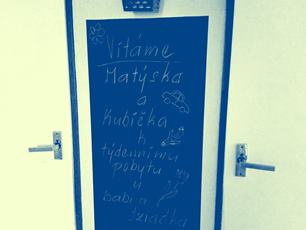 Vítáme
Matýska
a
Kubíčka
k
týdennímu
pobytu
u
babi a